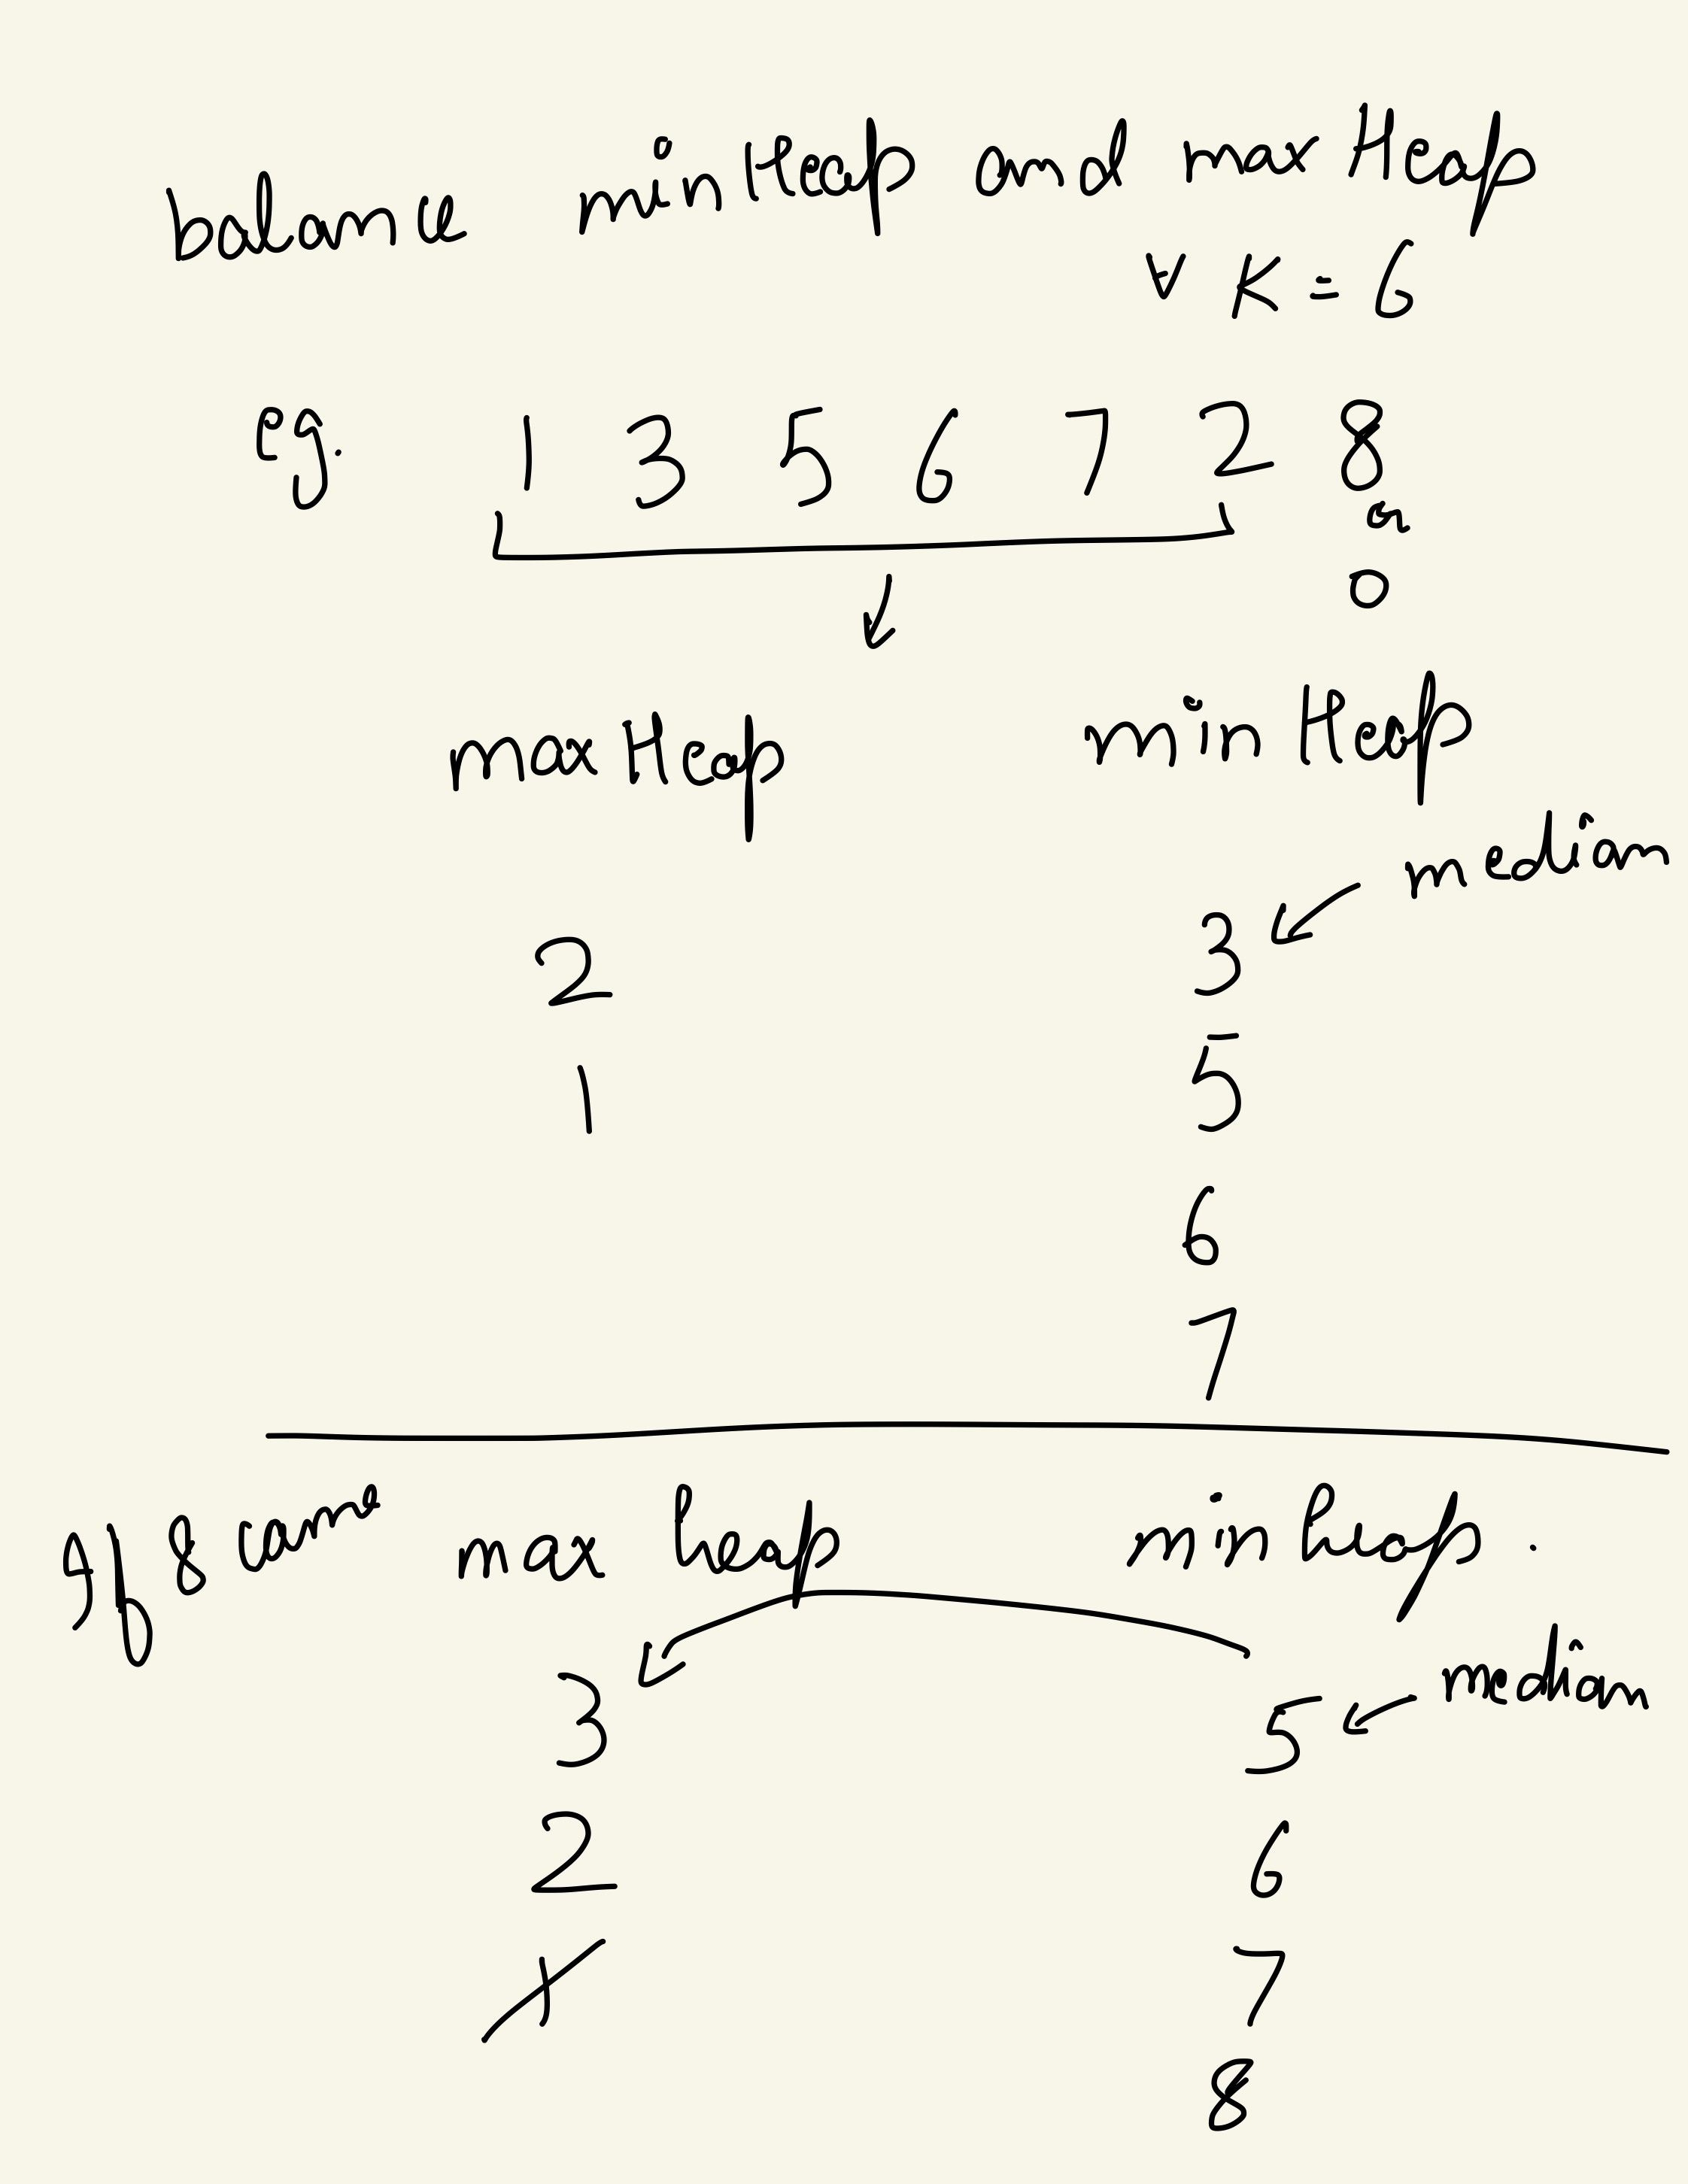 balance minHeap and maxHeap
∀ K = 6
eg. 1 3 5 6 7 2 8
or
0
maxHeap minHeap
median
2 3
1 5
6
7
If 8 came max heap min heap.
median
3 5
2 6
1 7
8